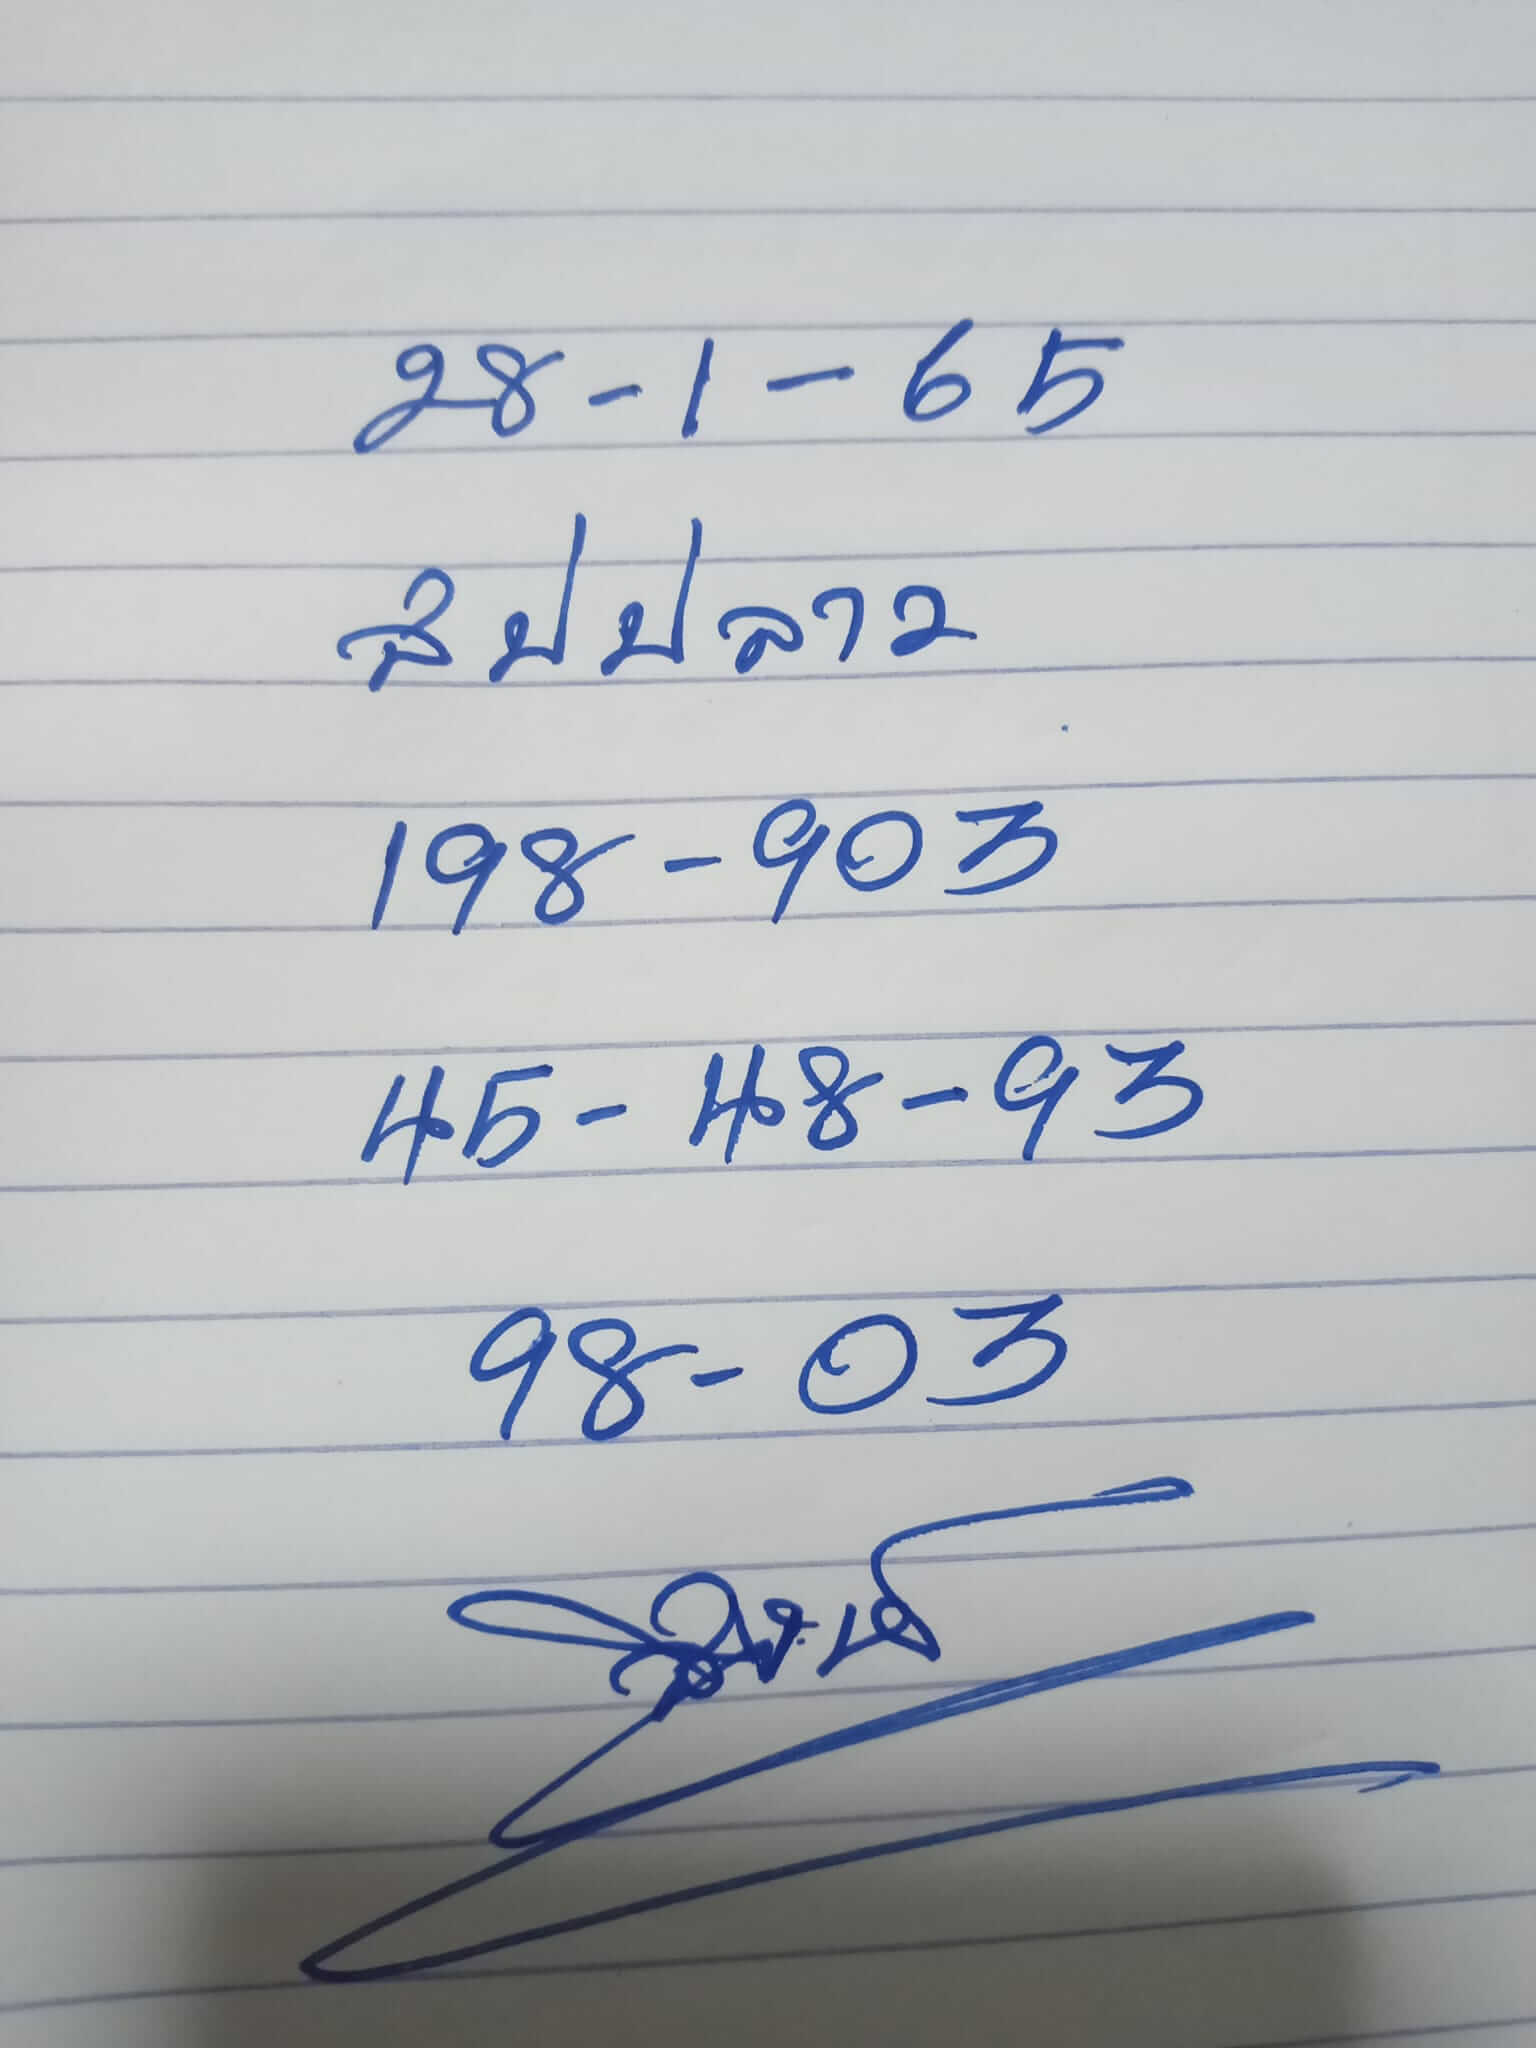 28-1-65
สปปลาว
198-903
45-48-93
98-03